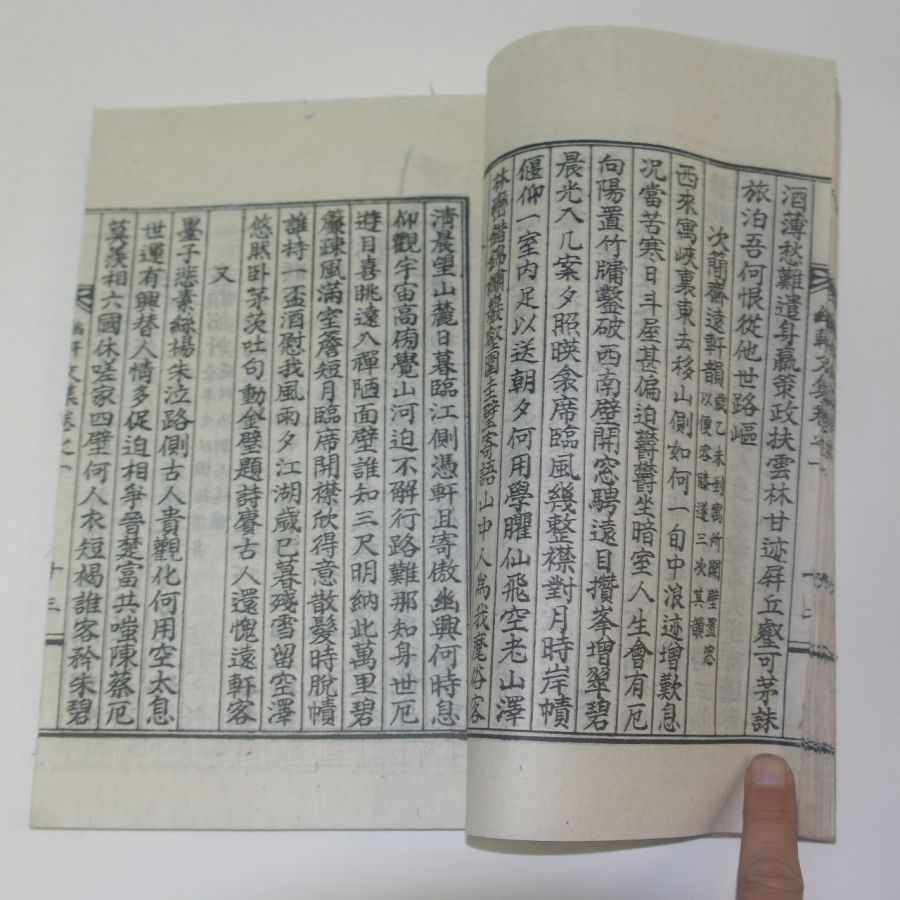 酒薄愁難遣身羸策政扶雲林甘迹屏丘壑可茅誅
旅泊吾何恨從他世路嶇
次簡齋遠軒韻
歲乙未到寓所開壁置窓
以便容膝遂三次其韻
西來寓峽裏東去移山側如何一旬中浪迹增歎息
況當苦寒日斗屋甚偏迫鬱鬱坐暗室人生會有厄
向陽置竹牗鑿破西南壁開窓騁遠目攢峯增翠碧
晨光入几案夕照暎衾席臨風幾整襟對月時岸幘
偃仰一室内足以送朝夕何用學臞仙飛空老山澤
林 壑圍圭璧寄語山中人爲我麾俗客
清晨望山麓日暮臨江側憑軒且寄傲幽興何時息
仰觀宇宙高俯覺山河迫不解行路難那知身世厄
遊目喜眺遠入禪陋面壁誰知三尺明納此萬里碧
簾疎風滿室簷短月臨席開襟欣得意散髮時脫幘
誰持一盃酒慰我風雨夕江湖歲已暮殘雪留空澤
悠然卧茅茨吐句動金璧題詩賡古人還愧遠軒客
又
墨子悲素絲楊朱泣路側古人貴觀化何用空太息
世運有興替人情多促迫相爭晉楚富共嗤陳蔡厄
莫羨相六國休嗟家四壁何人衣短褐誰客矜朱碧
軒文集卷之一
十三